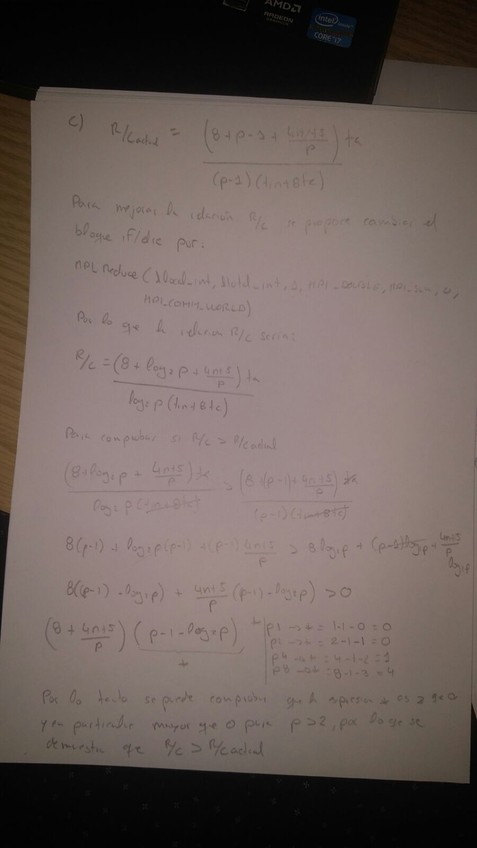 AMD
RADEON
intel
CORE i7
c) R/Cactual = (8+p-1+ (4n+5)/p) ta
(p-1)(tin+8tc)
Para mejorar la relación R/C se propone cambiar el
bloque if/else por:
MPI_Reduce(&local_int, &total_int, 1, MPI_DOUBLE, MPI_SUM, 0,
MPI_COMM_WORLD)
Por lo que la relación R/C sería:
R/C = (8 + log₂p + (4n+5)/p) ta
log₂p (tin+8tc)
Para comprobar si R/C > R/Cactual
(8+log₂p + (4n+5)/p) ta > (8+(p-1)+ (4n+5)/p) ta
log₂p (tin+8tc) (p-1)(tin+8tc)
8(p-1) + log₂p(p-1) + (p-1) (4n+5)/p > 8 log₂p + (p-1)log₂p + (4n+5)/p log₂p
8((p-1) - log₂p) + (4n+5)/p (p-1) - log₂p) > 0
(8 + (4n+5)/p) (p-1-log₂p)
p1 → * = 1-1-0=0
p2 → * = 2-1-1=0
p4 → * = 4-1-2=1
p8 → * = 8-1-3=4
Por lo tanto se puede comprobar que la expresión * es ≥ que 0
y en particular mayor que 0 para p>2, por lo que se
demuestra que R/C > R/Cactual